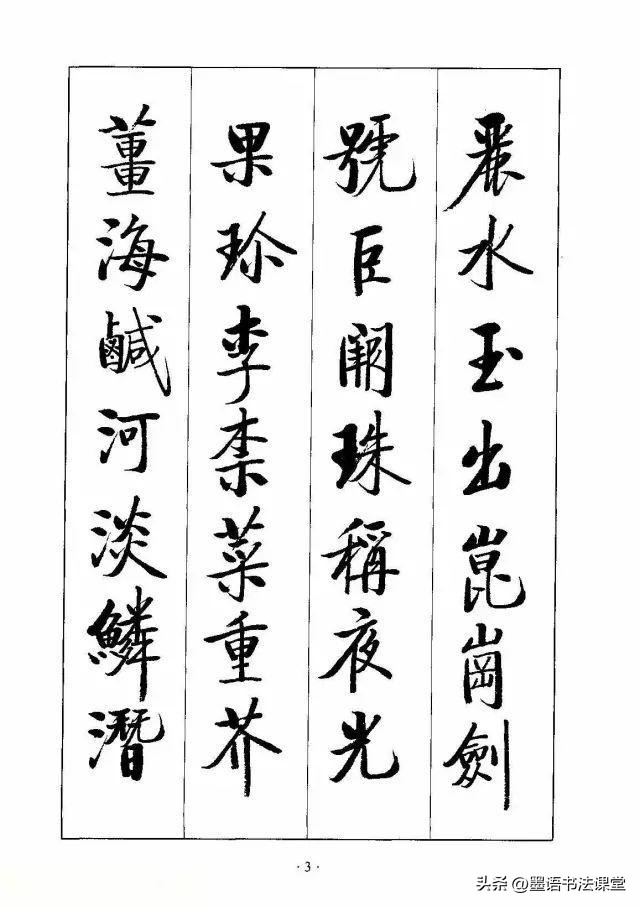 麗水玉出崑崗劍
號巨闕珠稱夜光
果珍李柰菜重芥
薑海鹹河淡鱗潛
·3·
头条 @墨语书法课堂